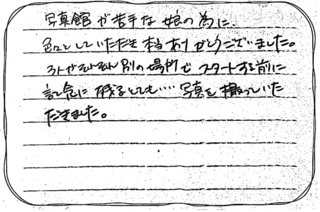 写真館が苦手な娘の為に、
色々としていただき本当ありがとうございました。
別の場所でスタートする前に
記念に残るとても… 写真を撮っていた
だきました。